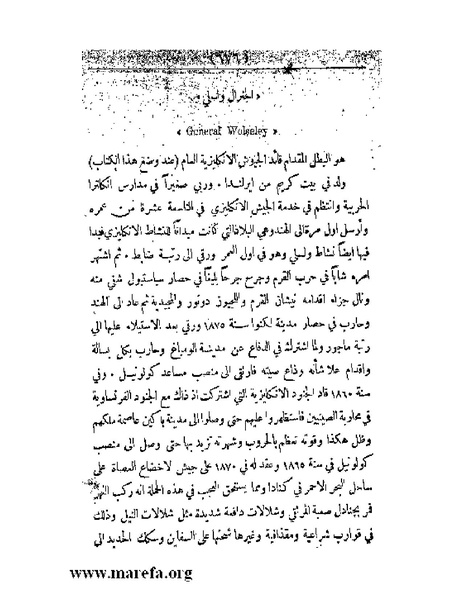 (٦٧٦)
« الجنرال ولسلي »
« General Wolseley »
هو البطل المقدام قائد الجيوش الانكليزية العام (عند وضع هذا الكتاب)
ولد في بيت كريم من ايرلندا . وربي صغيراً في مدارس انكلترا
الحربية وانتظم في خدمة الجيش الانكليزي في التاسعة عشرة من عمره
وأرسل اول مرة الى الهند وهي البلاد التي كانت ميداناً للنشاط الانكليزي فبدا
فيها ايضاً نشاط ولسلي وهو في اول العمر ورقي الى رتبة ضابط . ثم اشتهر
امره شاباً في حرب القرم وجرح جرحاً بليغاً في حصار سباستبول شفي منه
ونال جزاء اقدامه نيشان القرم واللجيون دونور والمجيدية ثم عاد الى الهند
وحارب في حصار مدينة لكنوا سنة ١٨٧٥ ورقي بعد الاستيلاء عليها الى
رتبة ماجور ولما اشترك في الدفاع عن مدينة الومباغ وحارب بكل بسالة
واقدام علا شأنه وذاع صيته فارتقى الى منصب مساعد كولونيل . وفي
سنة ١٨٦٠ قاد الجنود الانكليزية التي اشتركت اذ ذاك مع الجنود الفرنساوية
في محاربة الصينيين فاستظهروا عليهم حتى وصلوا الى مدينة باكين عاصمة ملكهم
وظل هكذا وقوته تعظم بالحروب وشهرته تزيد بها حتى وصل الى منصب
كولونيل في سنة ١٨٦٥ وعقد له في ١٨٧٠ على جيش لاخضاع العصاة على
ساحل البحر الاحمر في كنادا ومما يستحق العجب في هذه الحملة انه ركب النهر
فمر بجنادل صعبة المرتقى وشلالات دافعة شديدة مثل شلالات النيل وذلك
في قوارب شراعية ومقذافية وغيرها شحنتها على السفاين وسكك الحديد الى
www.marefa.org